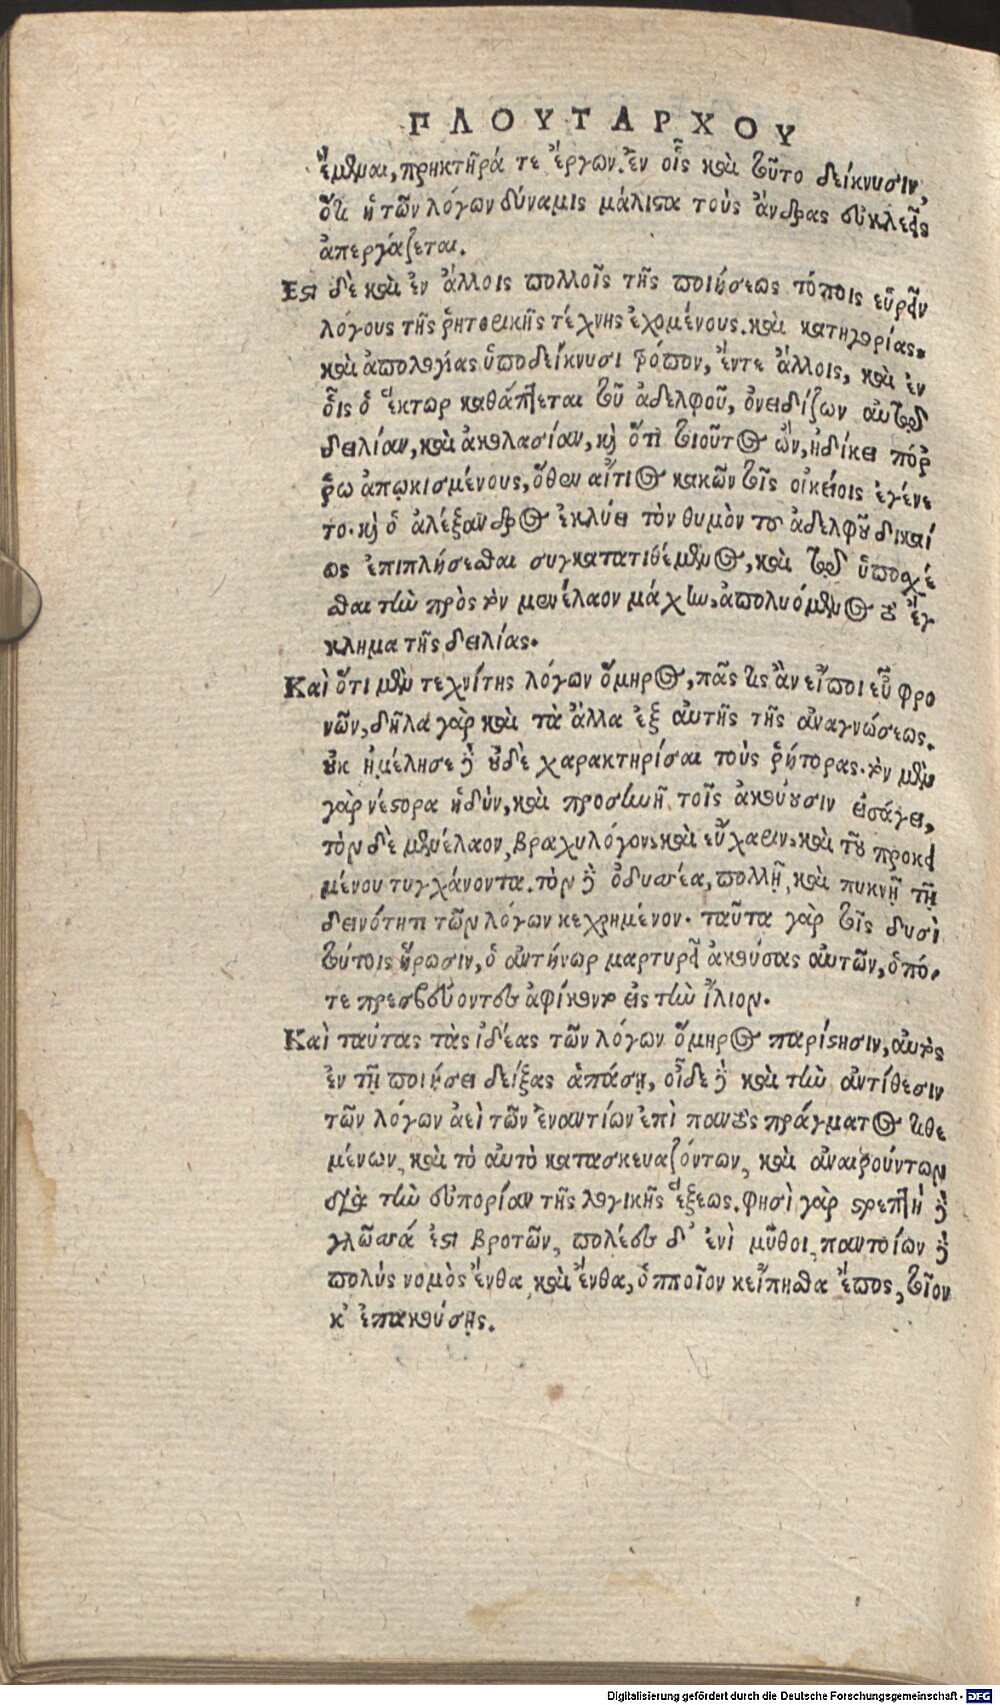 ΠΛΟΥΤΑΡΧΟΥ
ἔμεναι, πρηκτῆρά τε ἔργων. ἐν οἷς καὶ τοῦτο δείκνυσιν,
ὅτι ἡ τῶν λόγων δύναμις μάλιστα τοὺς ἄνδρας εὐκλεεῖς
ἀπεργάζεται.
Ἔστι δὲ καὶ ἐν ἄλλοις πολλοῖς τῆς ποιήσεως τόποις εὑρεῖν
λόγους τῆς ῥητορικῆς τέχνης ἐχομένους. καὶ κατηγορίας
καὶ ἀπολογίας ὑποδείκνυσι τρόπον, ἔντε ἄλλοις, καὶ ἐν
οἷς ὁ ἕκτωρ καθάπτεται τοῦ ἀδελφοῦ, ὀνειδίζων αὐτῷ
δειλίαν, καὶ ἀκολασίαν, καὶ ὅτι τοιοῦτος ὢν, ἠδίκει πόρ
ῥω ἀπῳκισμένους, ὅθεν αἴτιος κακῶν τοῖς οἰκείοις ἐγένε
το. καὶ ὁ ἀλέξανδρος ἐκλύει τὸν θυμὸν τοῦ ἀδελφοῦ δικαί
ως ἐπιπλήσεσθαι συγκατατιθέμενος, καὶ τῷ ὑποσχέ
σθαι τὴν πρὸς τὸν μενέλαον μάχην, ἀπολυόμενος τὸ ἔγ
κλημα τῆς δειλίας.
Καὶ ὅτι μὲν τεχνίτης λόγων ὅμηρος, πᾶς τις ἂν εἴποι εὖ φρο
νῶν, δῆλα γὰρ καὶ τὰ ἄλλα ἐξ αὐτῆς τῆς ἀναγνώσεως.
οὐκ ἠμέλησε δὲ οὐδὲ χαρακτηρίσαι τοὺς ῥήτορας. τὸν μὲν
γὰρ νέστορα ἡδὺν, καὶ προσηνῆ τοῖς ἀκούουσιν εἰσάγει,
τὸν δὲ μενέλαον, βραχυλόγον, καὶ εὔχαριν, καὶ τοῦ προκει
μένου τυγχάνοντα. τὸν δὲ ὀδυσσέα, πολλῇ, καὶ πυκνῇ τῇ
δεινότητι τῶν λόγων κεχρημένον. ταῦτα γὰρ τοῖς δυσὶ
τούτοις ἥρωσιν, ὁ ἀντήνωρ μαρτυρεῖ ἀκούσας αὐτῶν, ὁπό-
τε πρεσβεύοντες ἀφίκοντο εἰς τὴν ἴλιον.
Καὶ ταύτας τὰς ἰδέας τῶν λόγων ὅμηρος παρίστησιν, αὐτὸς
ἐν τῇ ποιήσει δείξας ἁπάσῃ, οἶδε δὲ καὶ τὴν ἀντίθεσιν
τῶν λόγων ἀεὶ τῶν ἐναντίων ἐπὶ παντὸς πράγματος τιθε
μένων, καὶ τὸ αὐτὸ κατασκευαζόντων, καὶ ἀναιρούντων
διὰ τὴν εὐπορίαν τῆς λογικῆς ἕξεως. φησὶ γὰρ στρεπτὴ δὲ
γλῶσσά ἐστι βροτῶν, πολέες δ' ἐνὶ μῦθοι, παντοίων δὲ
πολὺς νομὸς ἔνθα καὶ ἔνθα, ὁπποῖον κεἴπησθα ἔπος, τοῖον
κ' ἐπακούσῃς.
Digitalisierung gefördert durch die Deutsche Forschungsgemeinschaft - DFG